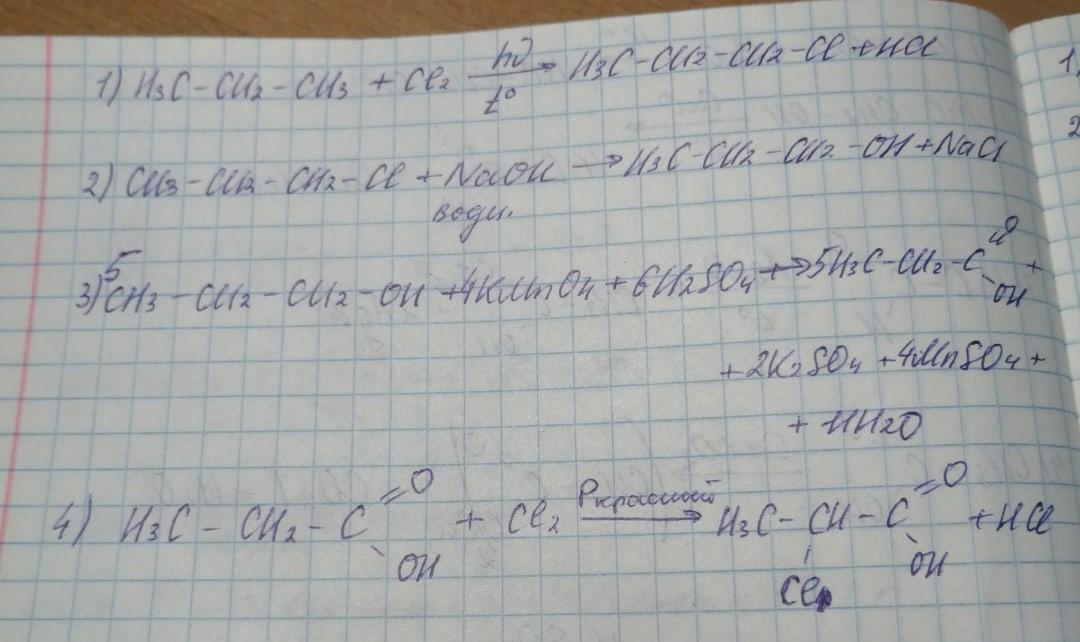 1) H₃C-CH₂-CH₃ + Cl₂ hν t° → H₃C-CH₂-CH₂-Cl + HCl
2) CH₃-CH₂-CH₂-Cl + NaOH → H₃C-CH₂-CH₂-OH + NaCl
водн.
3) 5CH₃-CH₂-CH₂-OH + 4KMnO₄ + 6H₂SO₄ → 5H₃C-CH₂-C=O OH +
+ 2K₂SO₄ + 4MnSO₄ +
+ 11H₂O
4) H₃C-CH₂-C=O OH + Cl₂ Pкрасный → H₃C-CH-C=O OH + HCl
Cl
1.
2